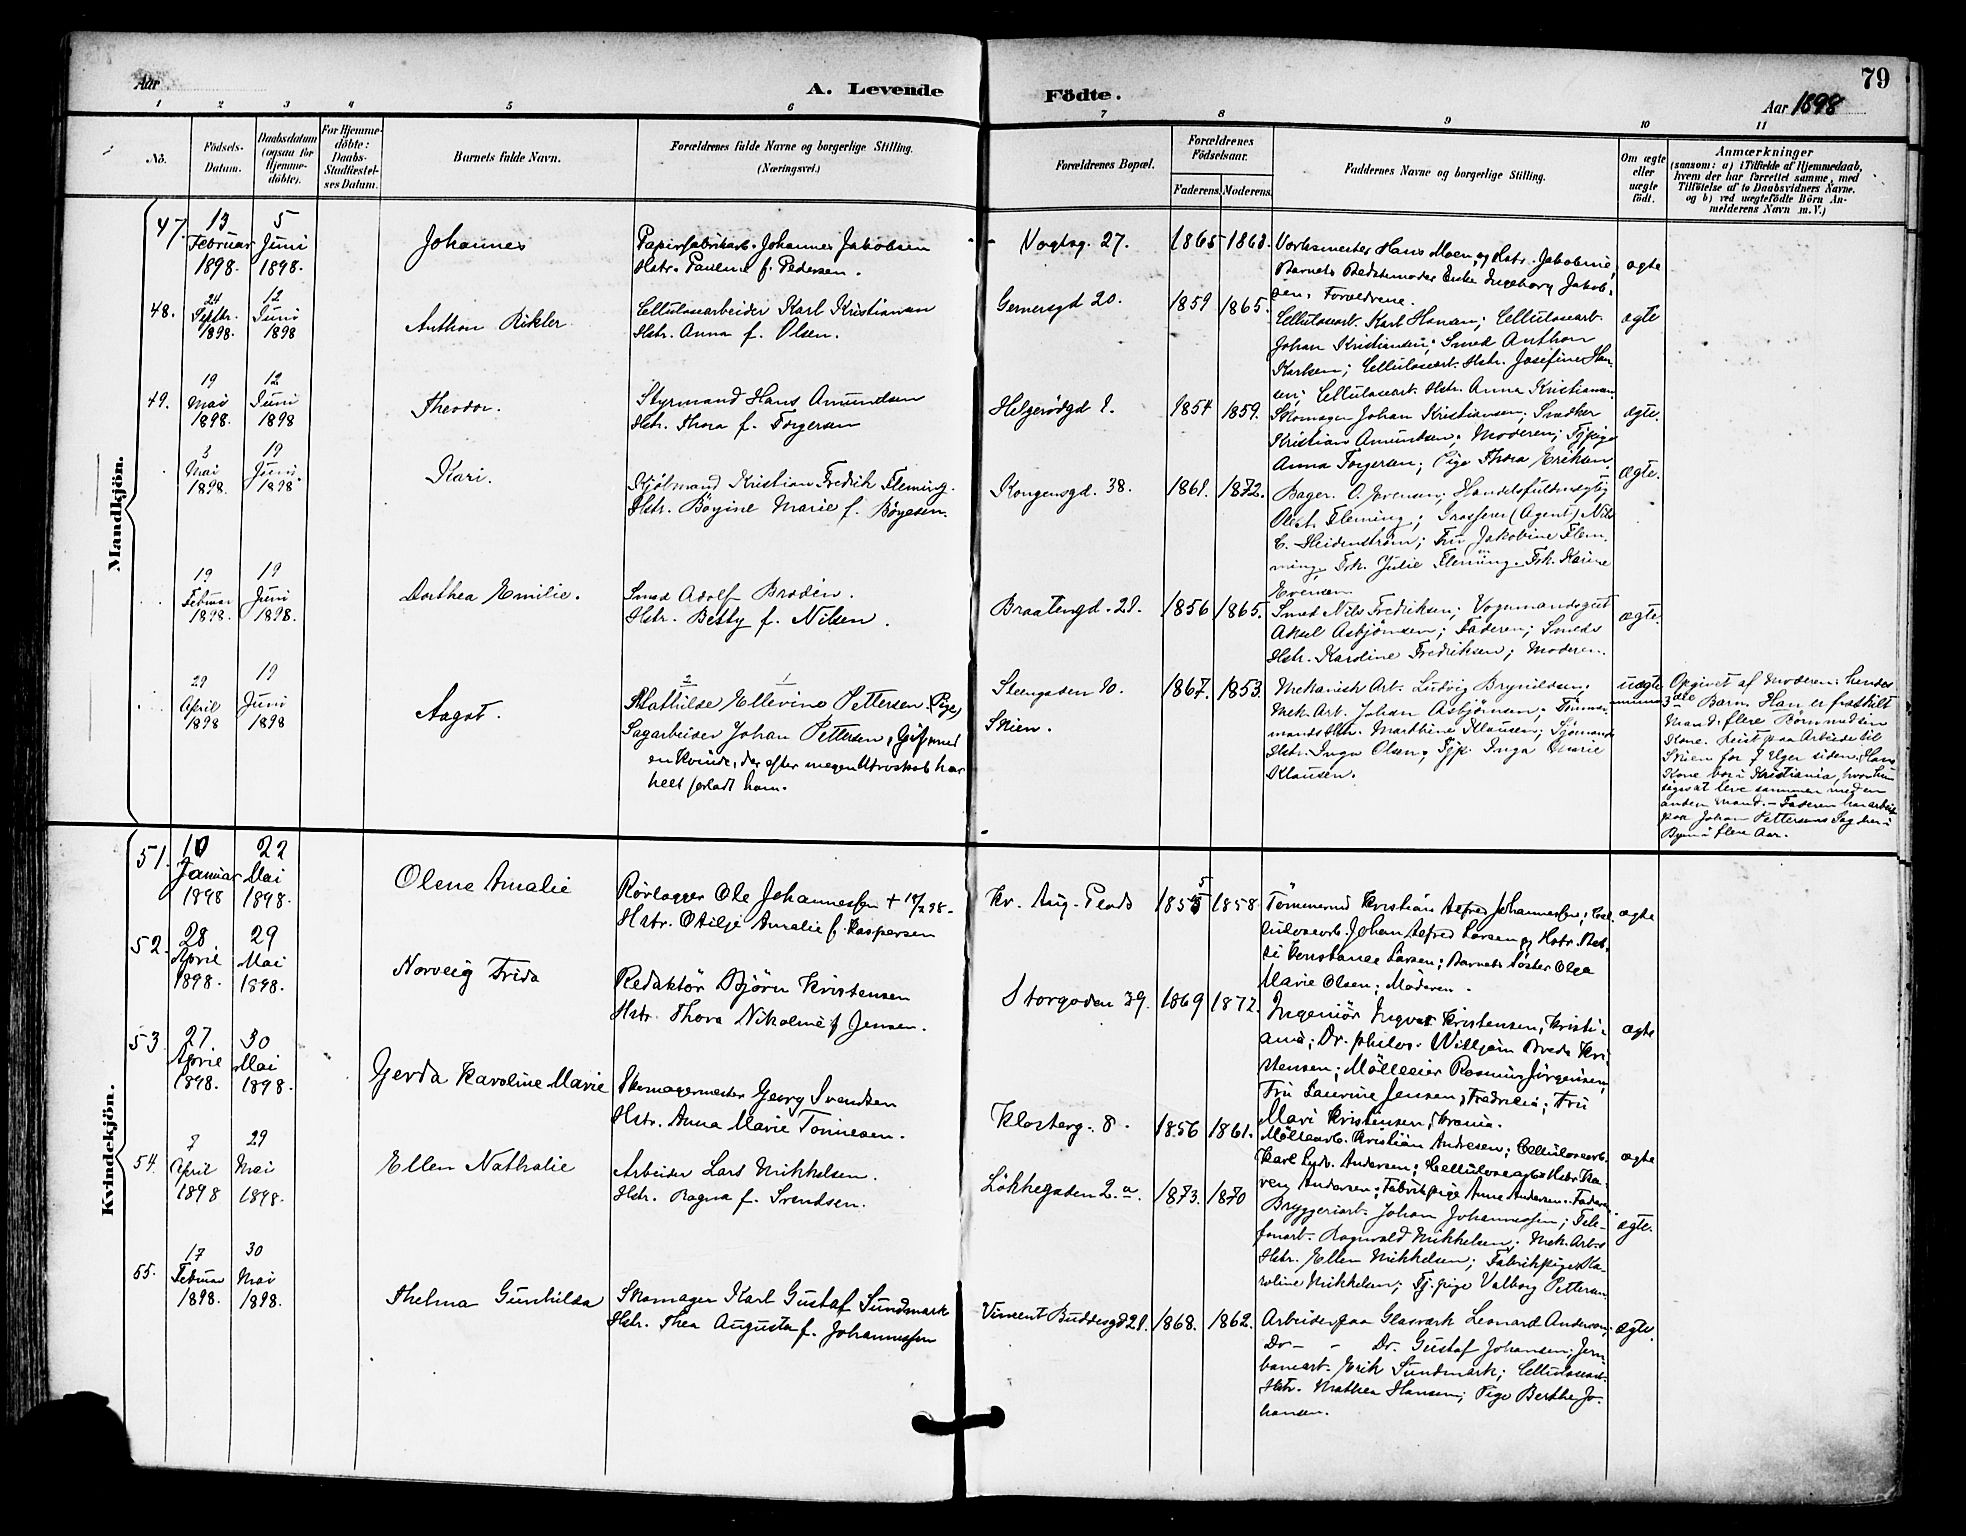 79
Aar
A. Levende
Födte.
Aar 1898
1 2 3 4 5 6 7 8 9 10 11
No.
Födsels-
Datum.
Daabsdatum
(ogsaa for
Hjemme-
döbte).
For Hjemme-
döbte:
Daabs-
Stadfæstel-
ses Datum.
Barnets fulde Navn.
Forældrenes fulde Navne og borgerlige Stilling.
(Næringsvei.)
Forældrenes Bopæl.
Forældrenes
Födselsaar.
Faderens.
Moderens.
Faddernes Navne og borgerlige Stilling.
Om ægte
eller
uægte
födt.
Anmærkninger
(saasom: a) i Tilfælde af Hjemmedaab,
hvem der har forrettet samme, med
Tilföielse af to Daabsvidners Navne.
og b) ved uægtefödte Börn An-
melderens Navn m. V.)
Mandkjön.
47.
13
Februar
1898.
5
Juni
1898.
Johannes
Papirfabrikarb. Johannes Jakobsen
Hstr. Pauline f. Pedersen.
Vogtsg. 27.
1865
1868.
Værksmester Hans Moen og Hstr. Jakobine,
Barnets Bedstemoder Enke Ingeborg Jakob-
sen, Forældrene.
ægte
48.
24
Septbr.
1898.
12
Juni
1898
Anthon Rikler
Cellulosearbeider Karl Kristiansen
Hstr. Anna f. Olsen.
Gernersgd 20.
1859
1865.
Cellulosearb. Karl Hansen; Cellulosearb.
Johan Kristiansen; Smed Anthon
Karlsen; Cellulosearb. Hstr. Josefine Han-
sen; Cellulosearb. Hstr. Anna Kristiansen
ægte
49.
19
Mai
1898.
12
Juni
1898
Theodor.
Styrmand Hans Amundsen
Hstr. Thora f. Torgersen
Helgerödgd 1.
1854
1859.
Skomager Johan Kristiansen; Snedker
Kristian Amundsen; Moderen; Tjpige
Anna Torgersen; Pige Thora Eriksen.
ægte.
3
Mai
1898.
19
Juni
1898
Kari.
Kjöbmand Kristian Fredrik Fleming.
Hstr. Böyine Marie f. Böyesen.
Kongensgd. 38.
1861.
1872.
Bager O. Evensen; Handelsfuldmægtig
Olest. Fleming; Grosserer (Agent) Nils
C. Heidenström; Fru Jakobine Flem-
ming, Frk. Julie Fleming. Frk. Karine
Evensen.
ægte.
19
Februar
1898.
19
Juni
1898.
Dorthea Emilie.
Smed Adolf Brodin.
Hstr. Betty f. Nilsen.
Braatengd. 21.
1856
1865.
Smed Nils Fredriksen; Vognmandsgut
Aksel Asbjörnsen; Faderen; Smeds
Hstr. Karoline Fredriksen; Moderen.
ægte.
29
April
1898
19
Juni
1898
Aagot.
2 1
Mathilde Ellevine Pettersen. (Pige)
Sagarbeider Johan Pettersen, Gift med
en kvinde, der efter megen Utroskab har
helt forladt ham.
Steengaden 10.
Skien.
1867.
1853.
Mekanisk Arb. Ludvig Brynildsen;
Mek. Arb. Johan Asbjörnsen; Tömmer-
mands Hstr. Marthine Klausen; Sjömands
Hstr. Inga Olsen; Tjp. Inga Marie
Klausen.
uægte
Opgivet af Moderen: hendes
3die Barn. Han er fraskilt
Mand, flere Börn med sin
Kone. Reist paa Arbeide til
Skien for 7 Uger siden. Hans
Kone bor i Kristiania, hvor hun
siges at leve sammen med en
anden Mand. – Faderen har arbeidet
paa Johan Pettersens Sag her i
Byen i flere Aar.
Kvindekjön.
51.
10
Januar
1898
22
Mai
1898.
Olene Amalie
Rörlægger Ole Johannessen + 18/2 98.
Hstr. Otilje Amalie f. Kaspersen
Kr. Aug. Plads
1855
1858
Tömmermd Kristian Alfred Johannessen; Cel-
lulosearb. Johan Alfred Larsen og Hstr. Bet-
si Konstanse Larsen; Barnets Söster Olga
Marie Olsen; Moderen.
ægte
52.
28
April
1898.
29
Mai
1898.
Norveig Frida
Redaktör Björn Kristensen
Hstr. Thora Nikoline f Jensen.
Storgaden 39.
1869
1872.
Ingeniör Ingvar Kristensen, Kristi-
ania; Dr. philos. Willjam Breda Kri-
stensen; Mölleeier Rasmus Jörgensen,
Fru Laurine Jensen, Fredricia; Fru
Mari Kristensen, Krania.
ægte
53.
27
April
1898.
30
Mai
1898.
Gerda Karoline Marie
Skomagermester Georg Svendsen
Hstr. Anna Marie Tönnesen.
Klosterg. 8.
1856
1861.
Möllearb. Kristian Andresen; Cellulosearb.
Karl Ludv. Andersen; Cellulosearb. Hstr. Ka-
ren Andersen; Fabrikpige Anne Andersen. Faderen
ægte
54.
7
April
1898
29
Mai
1898.
Ellen Nathalie
Arbeider Lars Mikkelsen.
Hstr. Ragna f. Svendsen.
Lökkegaden 2. a.
1873.
1870
Bryggeriarb. Johan Johannessen; Tele-
fonarb. Ragnvald Mikkelsen; Mek. Arb.s
Hstr. Ellen Mikkelsen; Fabrikpige Ka-
roline Mikkelsen; Tj.pige Valborg Pettersen
ægte.
55.
17
Februar
1898.
30
Mai
1898.
Thelma Gunhilda
Skomager Karl Gustaf Sundmark
Hstr. Thea Augusta f. Johannessen
Vincent Buddesgd 21.
1868.
1862.
Arbeider paa Glasværk Leonard Anderson;
Do – – Do. Gustaf Johansen; Jern-
banearb. Erik Sundmark; Cellulosearb.
Hstr. Mathea Hansen; Pige Berthe Jo-
hansen.
ægte.